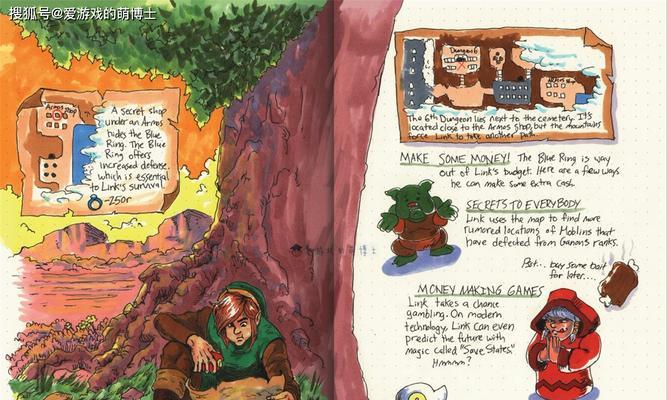 搜狐号@爱游戏的萌博士
Arms shop
A secret shop
under an Arms
hides the Blue
Ring. The Blue
Ring offers
increased defense,
which is essential
to Link's survival
-250r
Dungeon 6
Arms shop
The 6th Dungeon lies next to the cemetery. It's
located close to the Arms Shop, but the mountains
force Link to take another path.
MAKE SOME MONEY! The Blue Ring is way
out of Link's budget. Here are a few ways
he can make some extra cash.
SECRETS TO EVERYBODY
Link uses the map to find more
rumored locations of Moblins that
have defected from Ganon's ranks.
But... buy some bait
for later....
MONEY MAKING GAMES
Link takes a chance
gambling. On modern
technology, Link can even
predict the future with
magic called "Save States."
Hmmmm?